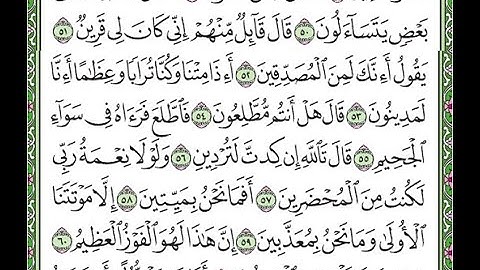 بَعْضٍ يَتَسَآءَلُونَ ٥٠ قَالَ قَآئِلٌ مِّنْهُمْ إِنِّي كَانَ لِي قَرِينٌ ٥١
يَقُولُ أَءِنَّكَ لَمِنَ ٱلْمُصَدِّقِينَ ٥٢ أَءِذَا مِتْنَا وَكُنَّا تُرَابًا وَعِظَٰمًا أَءِنَّا
لَمَدِينُونَ ٥٣ قَالَ هَلْ أَنتُم مُّطَّلِعُونَ ٥٤ فَٱطَّلَعَ فَرَءَاهُ فِي سَوَآءِ
ٱلْجَحِيمِ ٥٥ قَالَ تَٱللَّهِ إِن كِدتَّ لَتُرْدِينِ ٥٦ وَلَوْلَا نِعْمَةُ رَبِّي
لَكُنتُ مِنَ ٱلْمُحْضَرِينَ ٥٧ أَفَمَا نَحْنُ بِمَيِّتِينَ ٥٨ إِلَّا مَوْتَتَنَا
ٱلْأُولَىٰ وَمَا نَحْنُ بِمُعَذَّبِينَ ٥٩ إِنَّ هَٰذَا لَهُوَ ٱلْفَوْزُ ٱلْعَظِيمُ ٦٠